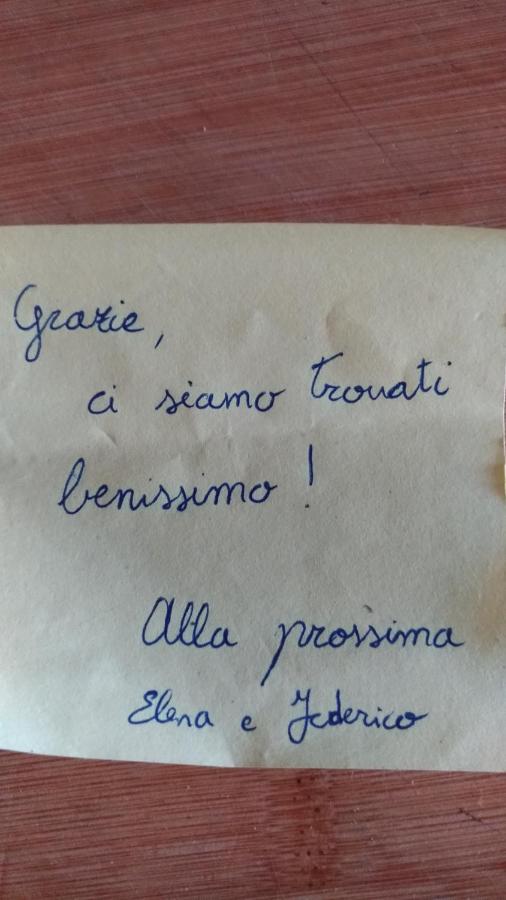 Grazie,
ci siamo trovati
benissimo!
Alla prossima
Elena e Federico